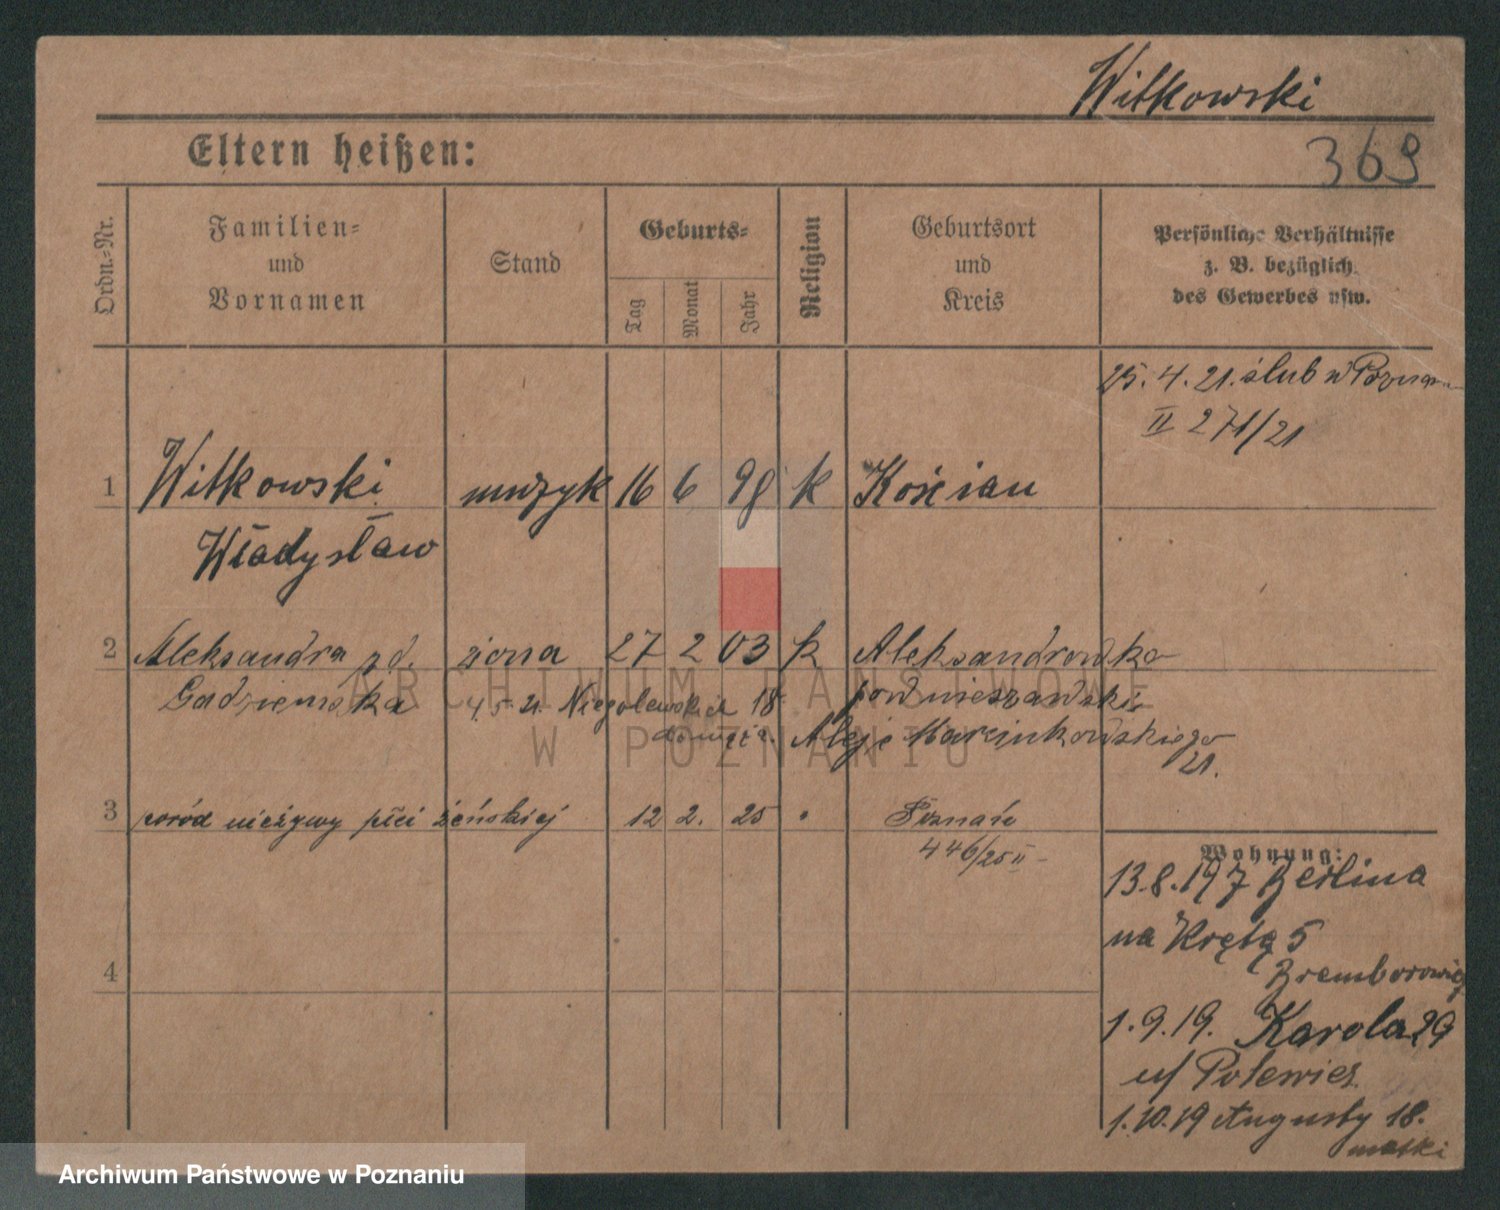 Witkowski
369
Eltern heißen:
Ordn.-Nr.
Familien-
und
Vornamen
Stand
Geburts-
Tag
Monat
Jahr
Religion
Geburtsort
und
Kreis
Persönliche Verhältnisse
z. B. bezüglich
des Gewerbes usw.
25. 4. 21. ślub w
II 271/21
1 Witkowski muzyk 16 6 98 k Kościan
Władysław
2 Aleksandra zd. żona 27 2 03 k Aleksandrowka
Gadziemska 18
Aleje Marcinkowskiego
21.
3 poród nieżywy płci żeńskiej 12 2. 25 Poznań
446/25 II
4
Wohnung:
13.8.19 z Berlina
na Krętą 5
1.9.19. Karola 29
u/
1.10.19 Augusty 18.
matki
ARCHIWUM PAŃSTWOWE
W POZNANIU
Archiwum Państwowe w Poznaniu